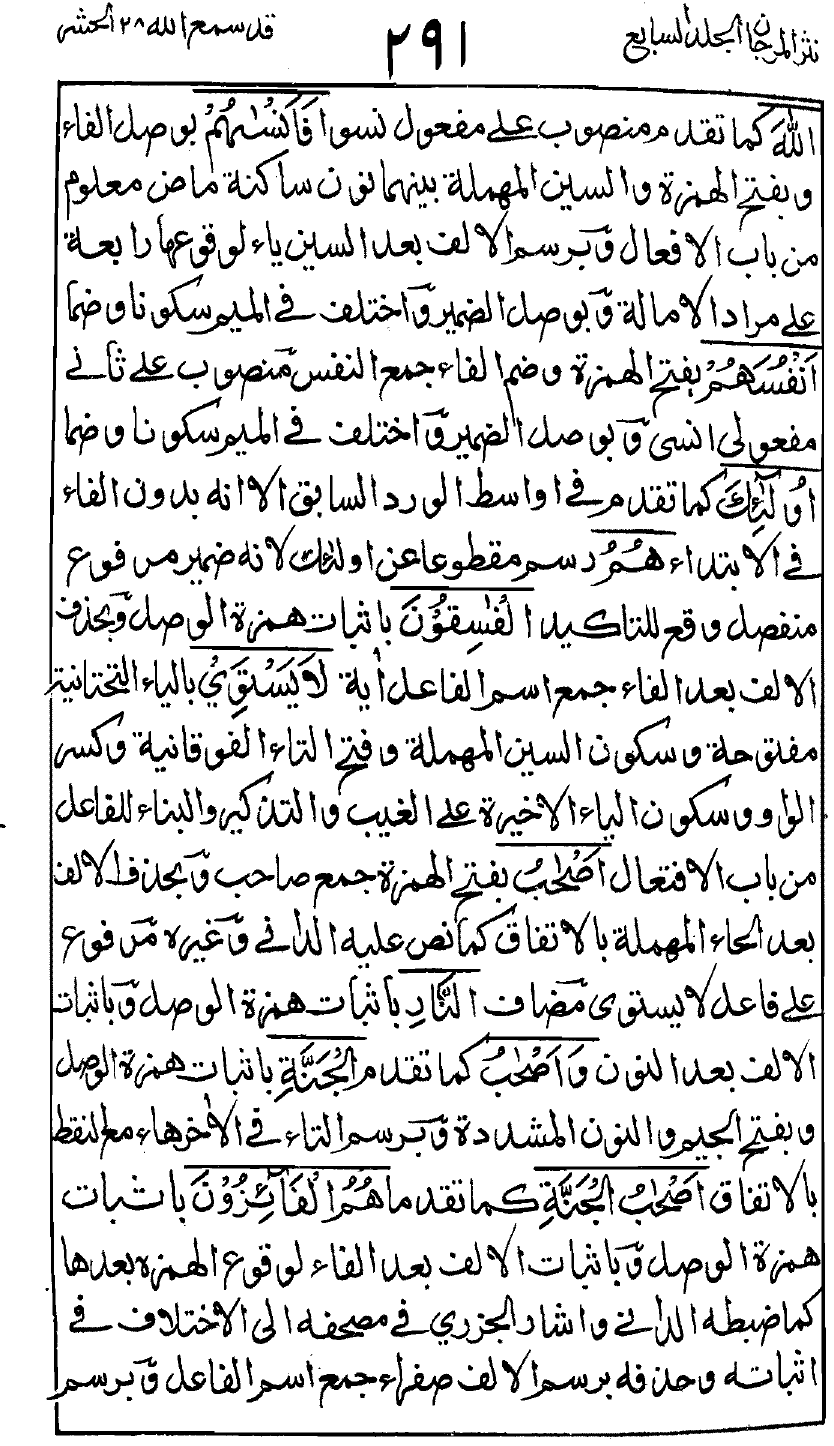 نثر المرجان الجلد السابع ٢٩١ قد سمع الله ٢٨ الحشر
اللهَ كما تقدم منصوب على مفعول نسوا فَاَنْسٰىهُمْ بوصل الفاء
و بفتح الهمزة والسين المهملة بينهما نون ساكنة ماض معلوم
من باب الافعال وٓبرسم الالف بعد السين ياء لوقوعها رابعة
على مراد الامالة وٓبوصل الضمير وٓاختلف فى الميم سكونا وضما
اَنْفُسَهُمْ بفتح الهمزة وضم الفاء جمع النفس منصوب على ثانے
مفعولى انسى وٓبوصل الضمير وٓاختلف فى الميم سكونا وضما
اُولٰٓئِكَ كما تقدم فى اواسط الورد السابق الا انه بدون الفاء
فى الابتداء هُمُ رسم مقطوعا عن اولئك لانه ضمير مرفوع
منفصل وقع للتاكيد الْفٰسِقُوْنَ باثبات همزة الوصل وٓبحذف
الالف بعد الفاء جمع اسم الفاعل اٰية لَا يَسْتَوِيْ بالياء التحتانية
مفتوحة وسكون السين المهملة وفتح التاء الفوقانية وكسر
الواو وسكون الياء الاخيرة على الغيب والتذكير والبناء للفاعل
من باب الافتعال اَصْحٰبُ بفتح الهمزة جمع صاحب وٓبحذف الالف
بعد الحاء المهملة بالاتفاق كما نص عليه الدانے وٓغيره مرفوع
على فاعل لا يستوى مضاف النَّارِ باثبات همزة الوصل وٓباثبات
الالف بعد النون وَاَصْحٰبُ كما تقدم الْجَنَّةِ باثبات همزة الوصل
و بفتح الجيم والنون المشددة وٓبرسم التاء فى الاٰخر هاء مع النقط
بالاتفاق اَصْحٰبُ الْجَنَّةِ كما تقدما هُمُ الْفَآئِزُوْنَ باثبات
همزة الوصل وٓباثبات الالف بعد الفاء لوقوع الهمزه بعدها
كما ضبطه الدانے واشار الجزري فى مصحفه الى الاختلاف فے
اثباته وحذفه برسم الالف صفراء جمع اسم الفاعل وٓبرسم